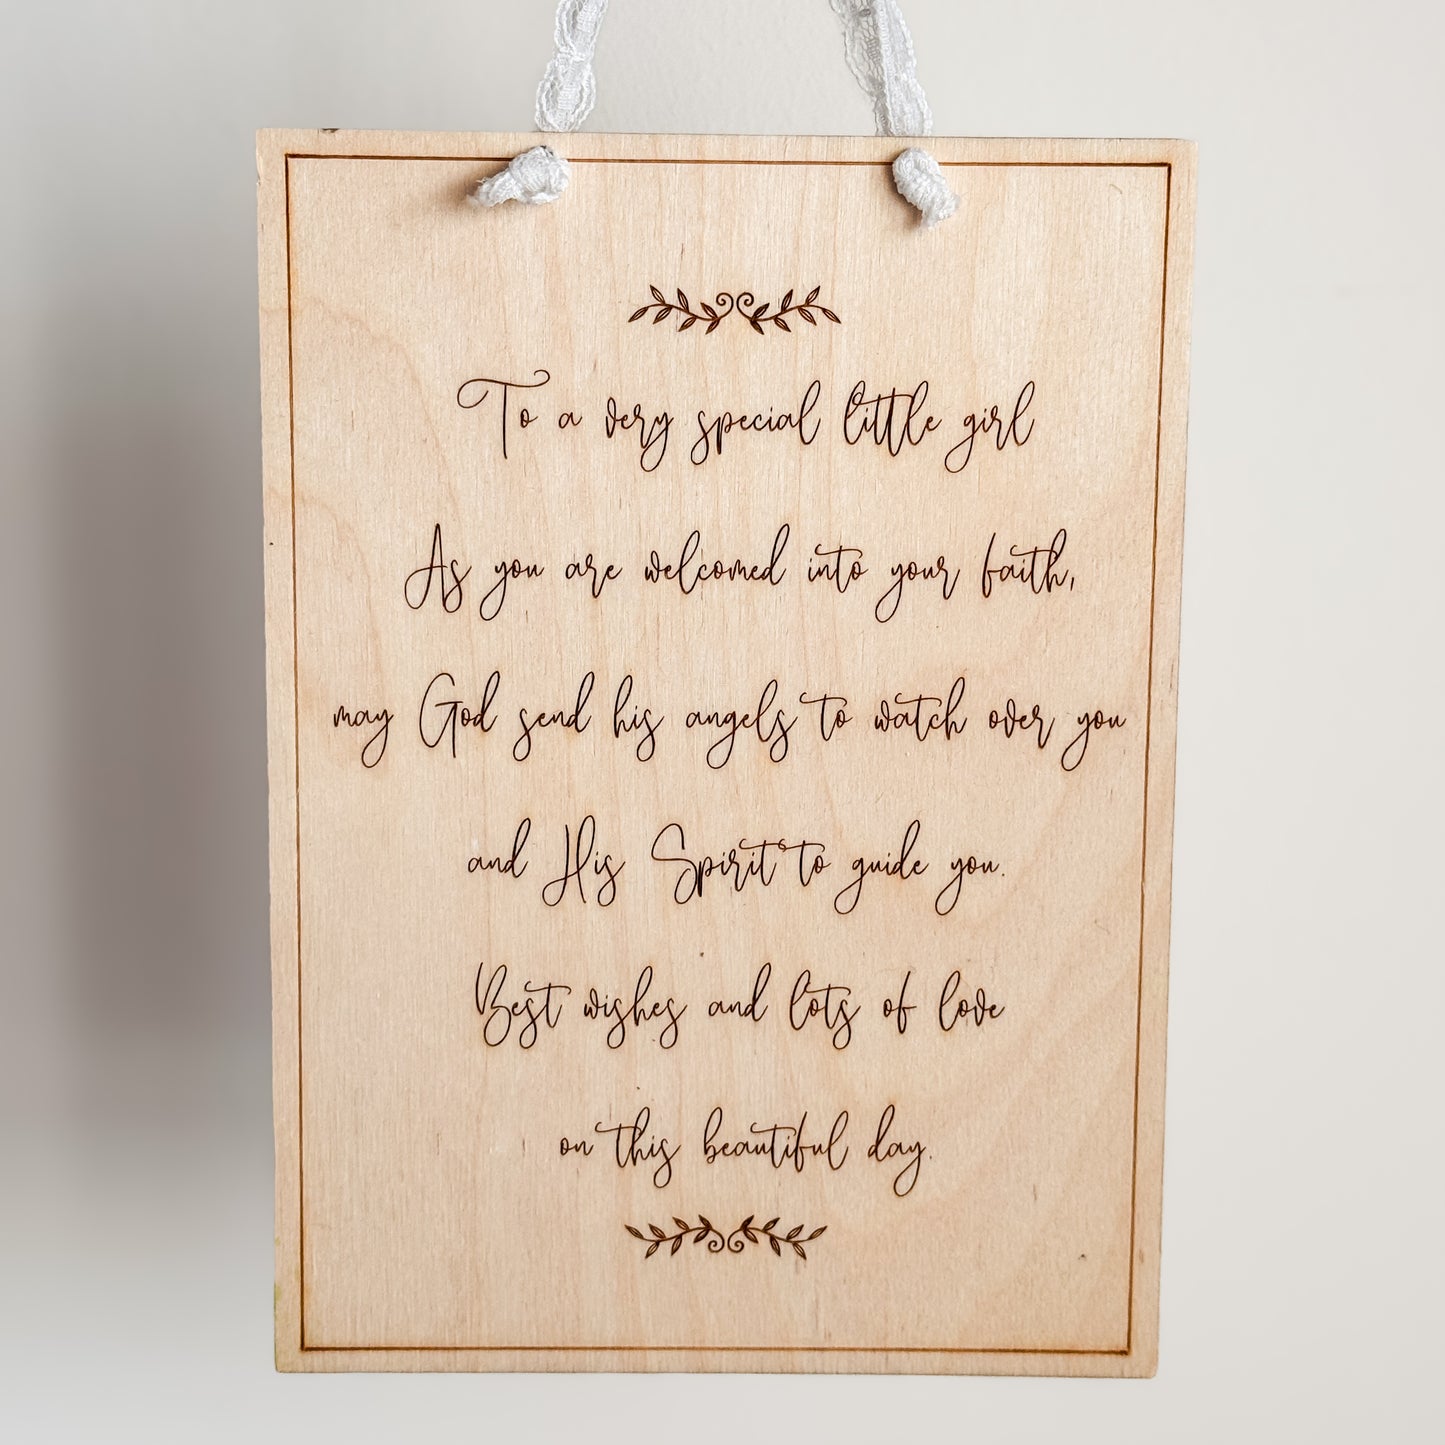 To a very special little girl
As you are welcomed into your faith,
may God send his angels to watch over you
and His Spirit to guide you.
Best wishes and lots of love
on this beautiful day.